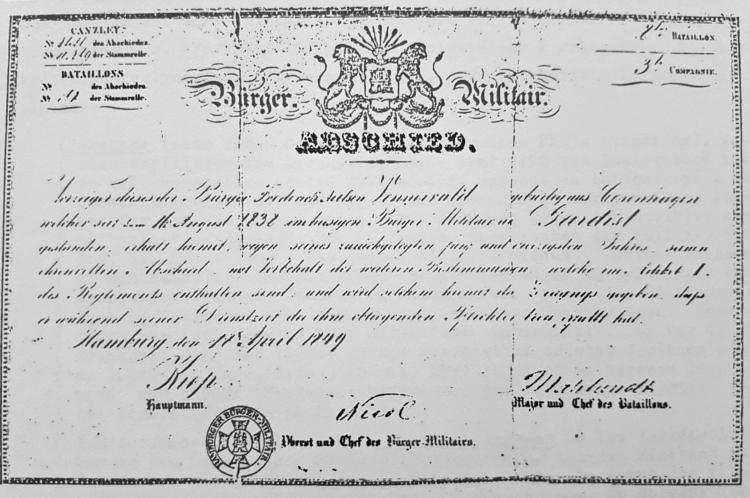 CANZLEY:
No. des Abschiedes.
No. der Stammrolle.
BATAILLONS
No. des Abschiedes.
No. der Stammrolle.
BATAILLON.
3te COMPAGNIE.
Bürger. Militair.
ABSCHIED.
Vorzeiger dieses der Bürger Frederick Nelson Vennerwald gebürtig aus Copenhagen
welcher seit dem August 1838 im hiesigen Bürger Militair als Gardist
gestanden, erhält hiemit, wegen seines zurückgelegten fünf und vierzigsten Jahres, seinen
ehrenvollen Abschied, mit Vorbehalt der weiteren Bestimmungen, welche im Artikel 1.
des Reglements enthalten sind, und wird solchem hiemit das Zeugniß gegeben, daß
er während seiner Dienstzeit die ihm obliegenden Pflichten treu erfüllt hat.
Hamburg, den April 1849
Hauptmann.
Nicol
Major und Chef des Bataillons.
Oberst und Chef des Bürger-Militairs.
HAMBURGER BÜRGER-MILITAIR.